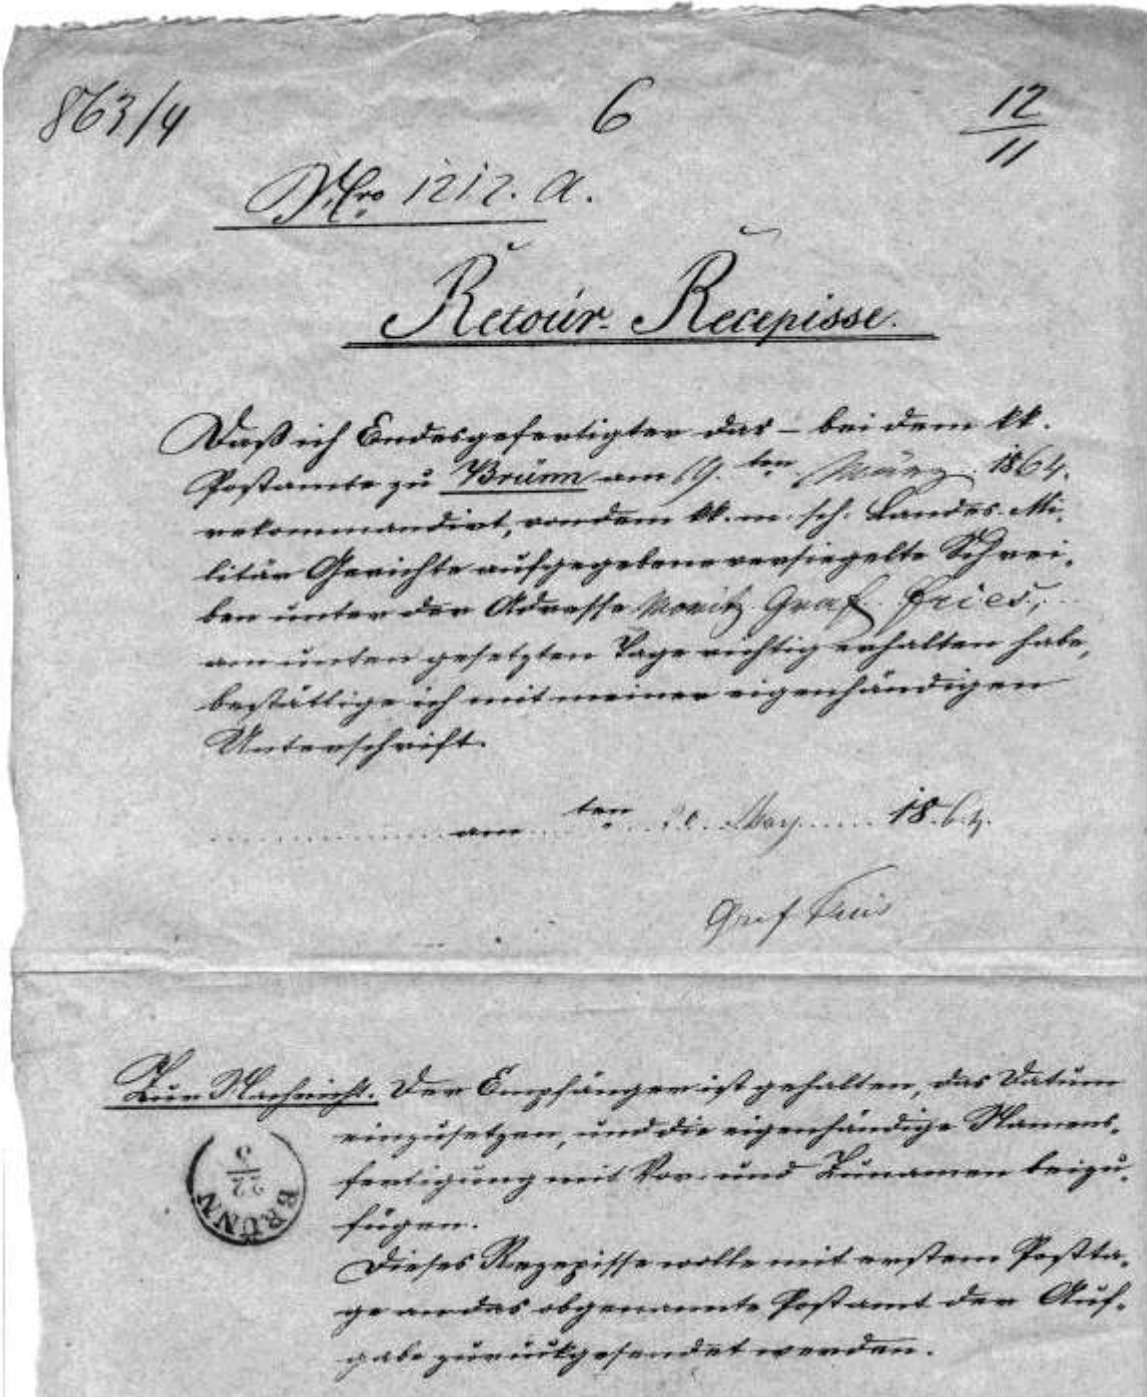 863/4 6 12/11
Nro 1212. A.
Retour-Recepisse.
Daß ich Endesgefertigter das – bei dem kk.
Postamte zu Brünn am 19. ten März 1864.
rekommandirt, von dem kk. m. sch. Landes-Mi-
litär Gerichte aufgegebene versiegelte Schrei-
ben unter der Adresse Moritz Graf Fries,
am unten gesetzten Tage richtig erhalten habe,
bestättige ich mit meiner eigenhändigen
Unterschrift.
am ten 20. 1864.
Graf Fries
Zur Nachricht. Der Empfänger ist gehalten, das Datum
einzusetzen, und die eigenhändige Namens-
fertigung mit Vor- und Zunamen beizu-
fügen.
BRÜNN 22/3
Dieses Rezepisse wolle mit erstem Postta-
ge an das obgenannte Postamt der Auf-
gabe zurückgesendet werden.